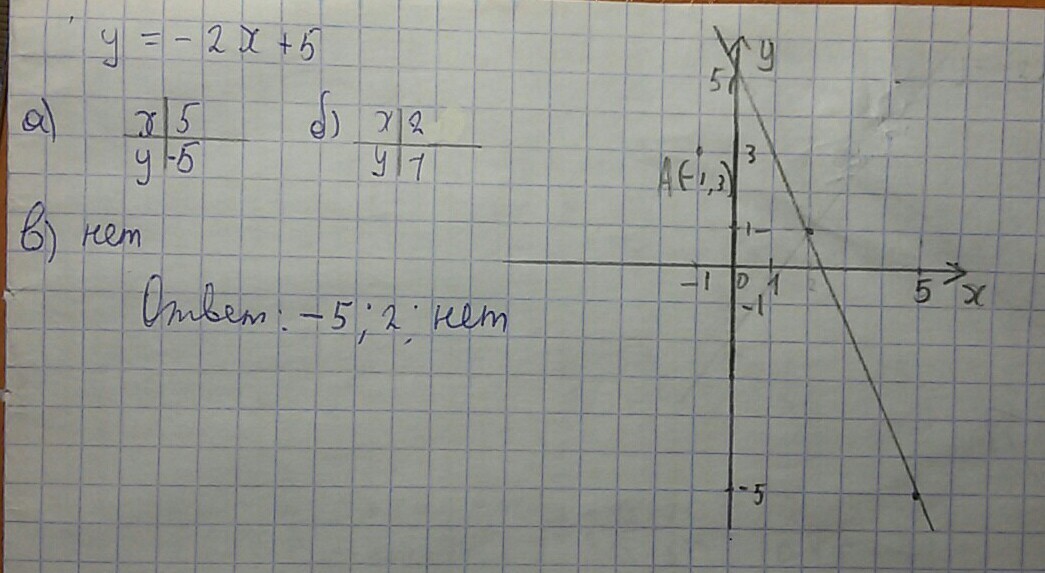 y = -2x + 5
а) x | 5
y | -5
б) x | 2
y | 1
в) нет
Ответ: -5; 2; нет
y
5
3
A(-1,3)
1
-1 0 1 5 x
-1
-5